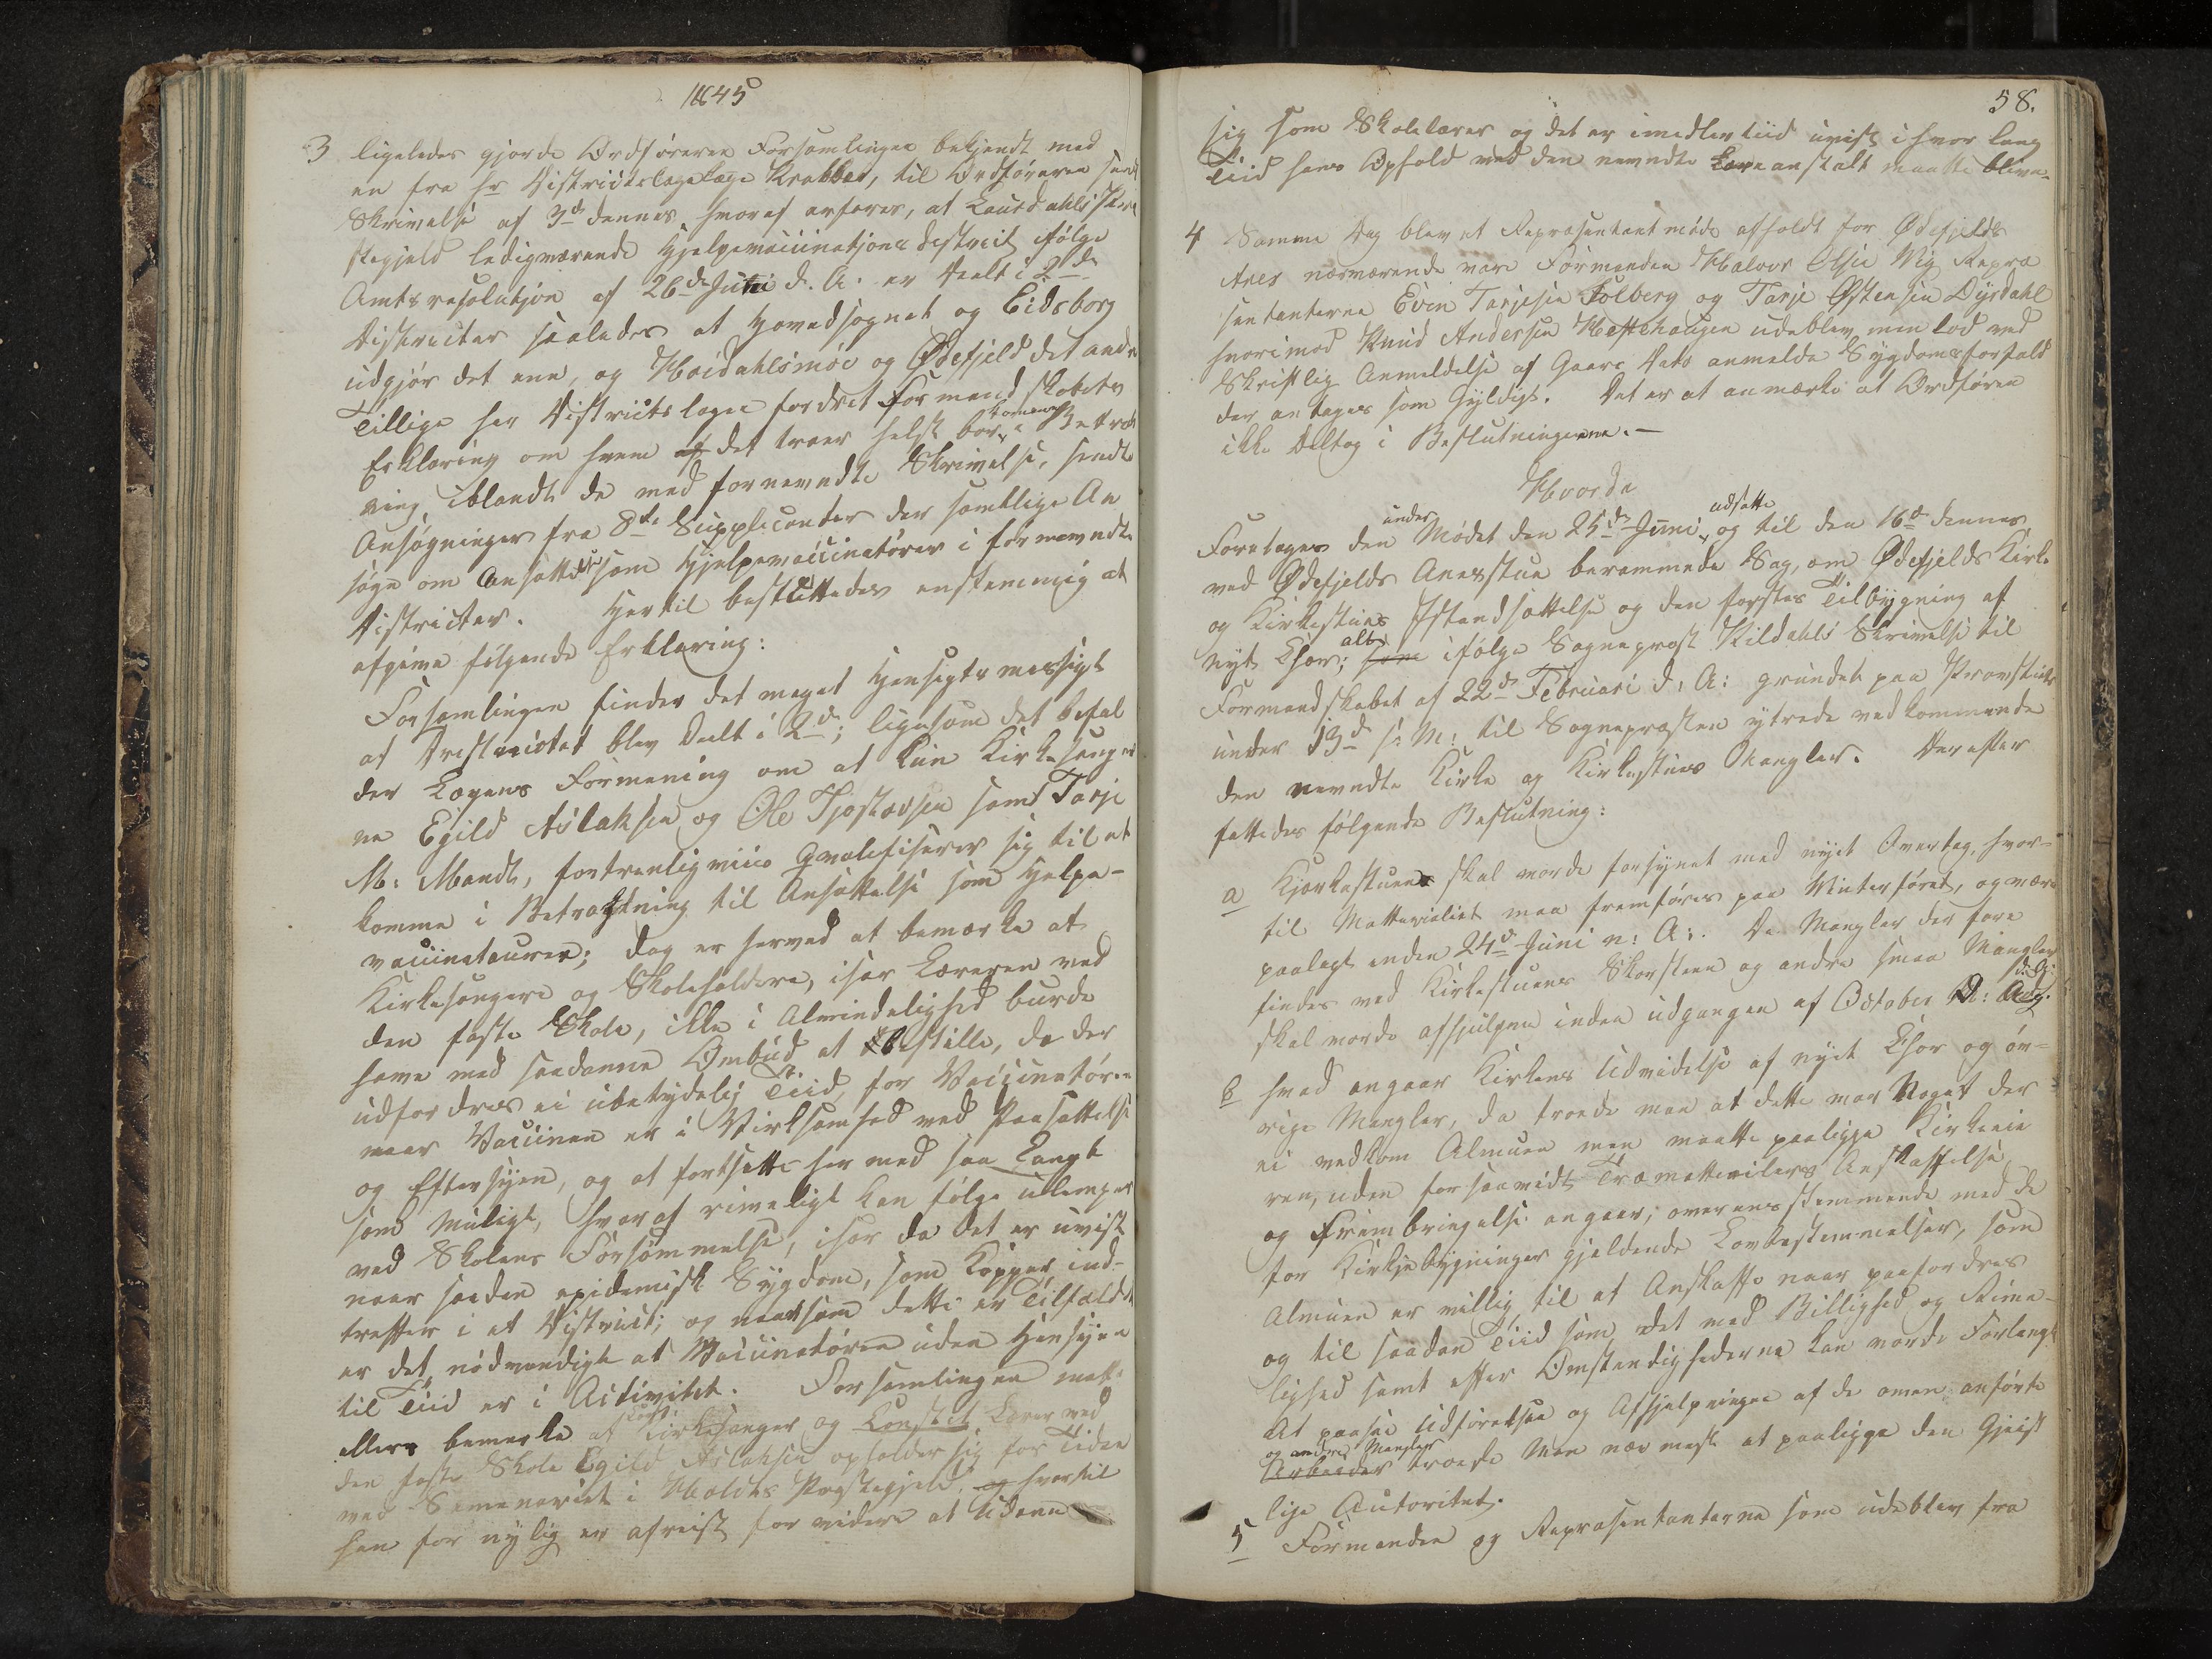 1845
3 ligeledes gjorde Ordføreren Forsamlingen bekjendt med
en fra hr Districtslagelæge Krabbes, til Ordføreren sendt
Skrivelse af 3de dennes hvoraf erfares, at Laurdahls Præ
stegjeld ledigværende Hjelpevaccinatjons destrict ifølge
Amtsresolutjon af 26de Juni d. A. er deelt i 2de
Districter saaledes at Hovedsognet og Eidsborg
udgjør det ene, og Høidahlsmoe og Ødefjeld det andet
Tillige har Districtslægen fordret Formandskabets
Erklæring om hvem af det troer helst bør komme i Betragt
ning iblandt de med fornevndte Skrivelse, sendte
Ansøgninger fra 8te Supplicanter der samtlige An
søge om Ansættelse som Hjelpevaccinatører i formævndte
Districter. Hertil besluttedes enstemmig at
afgive følgende Erklæring:
Forsamlingen finder det meget Hensigtsmæssigt
at Districtet blev deelt i 2de; ligesom det befal
der Lægens Formening om at kun Kirkesanger
ne Egild Aslaksen og Ole Tjostovsen samt Tarje
M: Mandt, fortrinligviis Qvalifiserer sig til at
komme i Betragtning til Ansættelse som Hjelpe-
vaccinateurer; dog er herved at bemærke at
Kirkesangere og Skoleholdere, især Læreren ved
den faste Skole, ikke i Almindelighed burde
have med saadanne Ombud at bestille, da der
udfordres ei ubetydelig Tiid, for Vaccinatøren
naar Vaccinen er i Virksomhed med Paasættelse
og Eftersyn, og at fortsætte her med saa Langt
som muligt, hvoraf rimeligt kan følge ulemper
ved Skolens Forsømmelse, især da det er uvist
naar saadan epidemisk Sygdom, som Kopper ind-
treffer i et District; og naarsom dette er Tilfældet
er det nødvendigt at Vaccinatøren uden Hensyn
til Tiid er i Activitet. Forsamlingen maatte
ellers bemerke at Kirkesanger og Const. Lærer ved
den faste Skole Egild Aslaksen opholder sig for Tiden
ved Semenariet i Hvidts Præstegjeld, og hvortil
han for nylig er afreist for videre at Udanne
58.
sig som Skolelærer og det er imedlertiid uvist i hvor lang
Tiid hans Ophold ved den nevndte Læreanstalt maatte blive.
4 Samme Dag blev et Repræsentantmøde afholdt for Ødefjelds
Anex nærværende vare Formanden Halvor Olsen Vig Repræ
sentanterne Even Tarjesen Folberg og Tarje Østensen Dyrdahl
hvorimod Knud Andersen Heftehaugen udeblev, men lod ved
Skriftlig Anmeldelse af Gaars Dato anmelde Sygdomsforfald
der antages som Gyldigt. Det er at anmærke at Ordføren
ikke deltog i Beslutningerne.—
Hvorda
Foretages den under Mødet den 25de Juni udsatte og til den 16de dennes
ved Ødefjelds Anexstue berammede Sag, om Ødefjelds Kirke
og Kirkestues Istandsættelse og den første Tilbygning af
nyt Chor; alt ifølge Sogneprest Kildahls Skrivelse til
Formandskabet af 22de Februari d. A: grundet paa Provstiets
under 13de s: M: til Sognepresten ytrede vedkommende
den nevndte Kirke og Kirkestues Mangler. Derefter
fattedes følgende Beslutning:
a Kjørkestuen skal vorde forsynet med nyit Overtag, hvor-
til Matterialiet maa fremføres paa Vinterføret, og være
paalagt inden 24de Juni n: A:. De Mangler der fore
findes ved Kirkestuens Skorsteen og andre smaa Mangler
skal vorde afhjulpne inden udgangen af October d: A:
B hvad angaar Kirkens Udvidelse af nyit Chor og øv-
rige Mangler, da troede man at dette var Noget der
ei vedkom Almuen men maatte paaligge Kirkeeie
ren, uden forsaavidt Træmatterialers Anskaffelse
og Frembringelse angaar; overensstemmende med de
for Kirkebygninger gjeldende Lovbestemmelser, som
Almuen er villig til at Anskaffe naar paafordres
og til saadan Tiid som det med Billighed og Rime-
lighed samt efter Omstændighederne kan vorde Forlangt
At paasee Udførelsen og Afhjelpningen af de oven anførte
og andre Mangler
Arbeider troede Man nærmest at paaligge den Gjeist
lige Autoritet.
5 Formanden og Repræsentanterne som udeblev fra